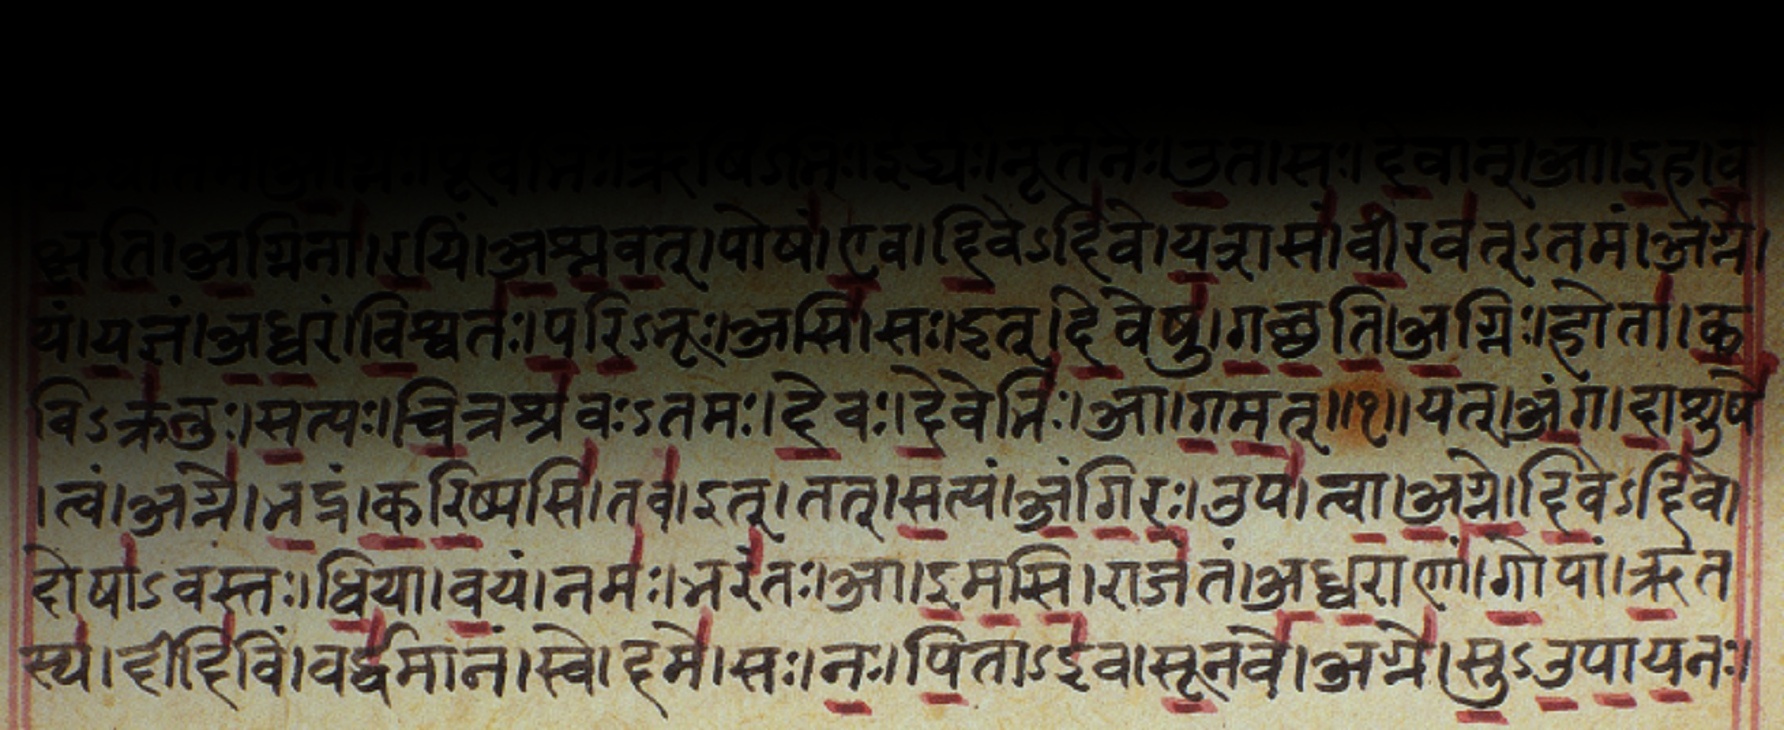 अग्निः।पूर्वेभिः।ऋषिऽभिः।ईड्यः।नूतनैः।उत।सः।देवान्।आ।इह।व
क्षति।अग्निना।रयिं।अश्नवत्।पोषं।एव।दिवेऽदिवे।यशसं।वीरवत्ऽतमं।अग्ने।
यं।यज्ञं।अध्वरं।विश्वतः।परिऽभूः।असि।सः।इत्।देवेषु।गच्छति।अग्निः।होता।क
विऽक्रतुः।सत्यः।चित्रश्रवःऽतमः।देवः।देवेभिः।आ।गमत्॥१॥यत्।अंग।दाशुषे
।त्वं।अग्ने।भद्रं।करिष्यसि।तव।इत्।तत्।सत्यं।अंगिरः।उप।त्वा।अग्ने।दिवेऽदिवे।
दोषाऽवस्तः।धिया।वयं।नमः।भरंतः।आ।इमसि।राजंतं।अध्वराणां।गोपां।ऋत
स्य।दीदिविं।वर्द्धमानं।स्वे।दमे।सः।नः।पिताऽइव।सूनवे।अग्ने।सुऽउपायनः।